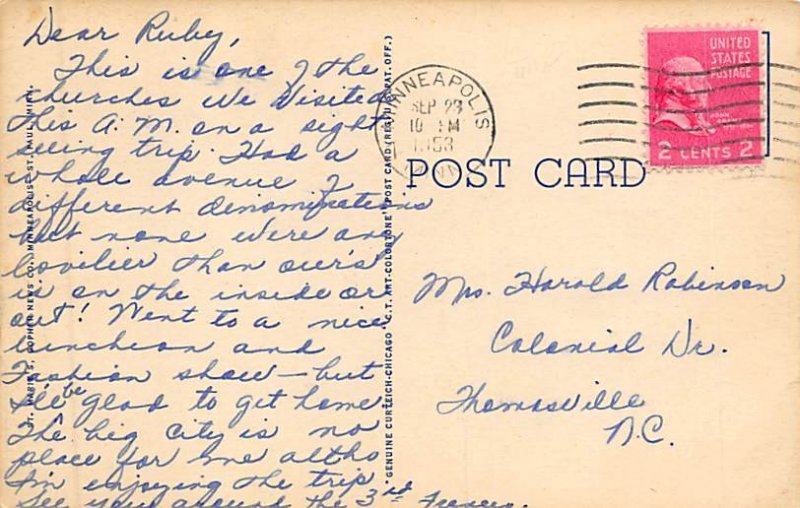 Dear Ruby,
This is one of the
churches we visited
this A.M. on a sight
seeing trip. Had a
whole avenue of
different denominations
but none were any
lovilier than our's
is on the inside or
out! Went to a nice
luncheon and
Fashion show — but
I'll be glad to get home
The big city is no
place for me altho
I'm enjoying the trip
See you around the 3rd
MINNEAPOLIS
SEP 29
10 PM
1953
MINN.
UNITED
STATES
POSTAGE
JOHN
2 CENTS 2
POST CARD
Mrs. Harold Robinson
Colonial Dr.
Thomasville
N.C.
GOPHER NEWS CO., MINNEAPOLIS - ST. PAUL, MINN.
"GENUINE CURTEICH-CHICAGO" "C.T. ART-COLORTONE" POST CARD (REG. U.S. PAT. OFF.)